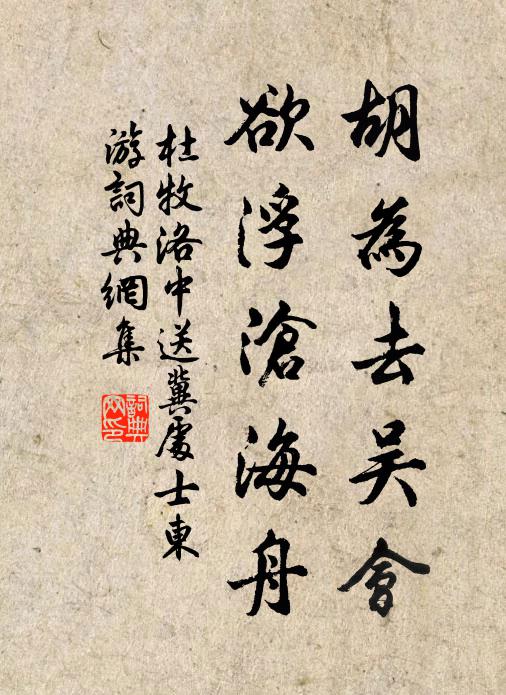 胡為去吴會
欲浮滄海舟
杜牧洛中送冀處士東
游詞典網集
詞典網印